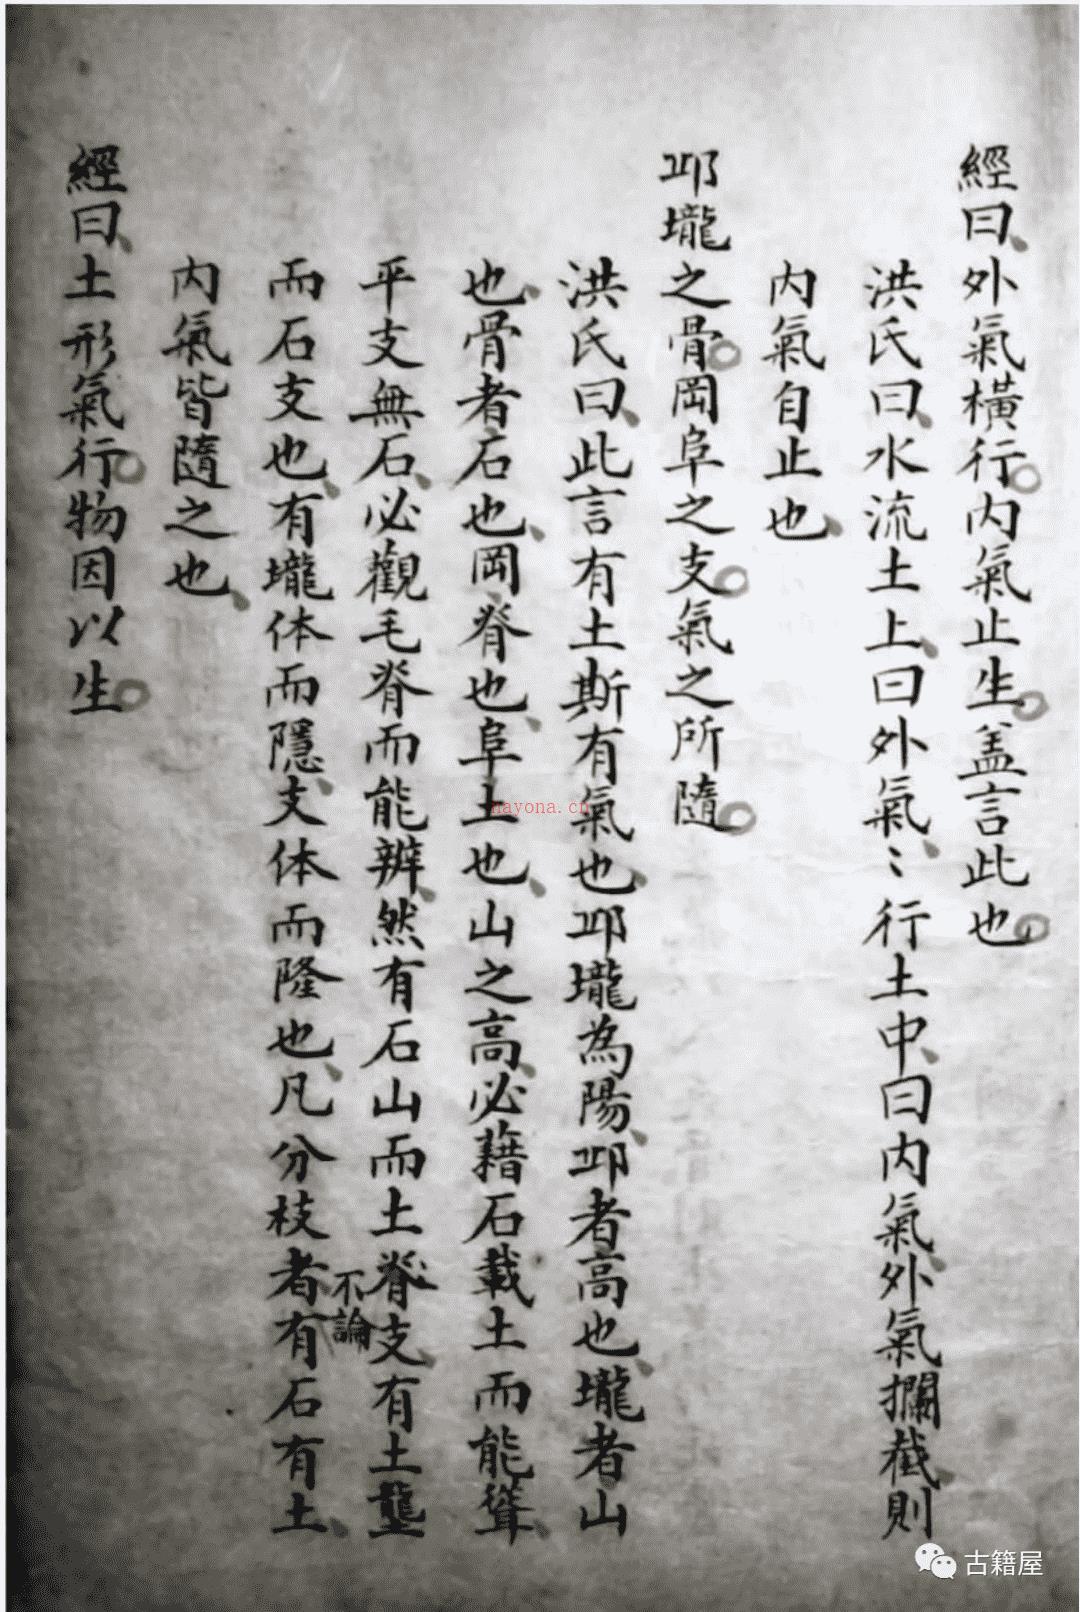 經曰外氣橫行內氣止生盖言此也
洪氏曰水流土上曰外氣〻行土中曰內氣外氣攔截則
內氣自止也
邱壠之骨岡阜之支氣之所隨
洪氏曰此言有土斯有氣也邱壠為陽邱者高也壠者山
也骨者石也岡脊也阜土也山之高必藉石載土而能聳
平支無石必觀毛脊而能辨然有石山而土脊支有土壟
而石支也有壠体而隱支体而隆也凡分枝者不論有石有土
內氣皆隨之也
經曰土形氣行物因以生
nayona.cn
古籍屋